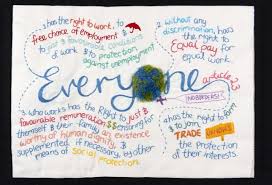 1. has the right to work, to
free choice of employment &
to just & favourable conditions
of work & to protection
against unemployment
2. without any
discrimination, has the
right to
Equal pay
for equal
work.
Everyone
article 23
(NO BORDERS!)
3. who works has the Right to just &
favourable remuneration $$ ensuring for
themself & their family an existence
worthy of human dignity &
supplemented if necessary, by other
means of social protection
4. has the right to form
& to join
TRADE UNIONS
for the Protection
of their interests